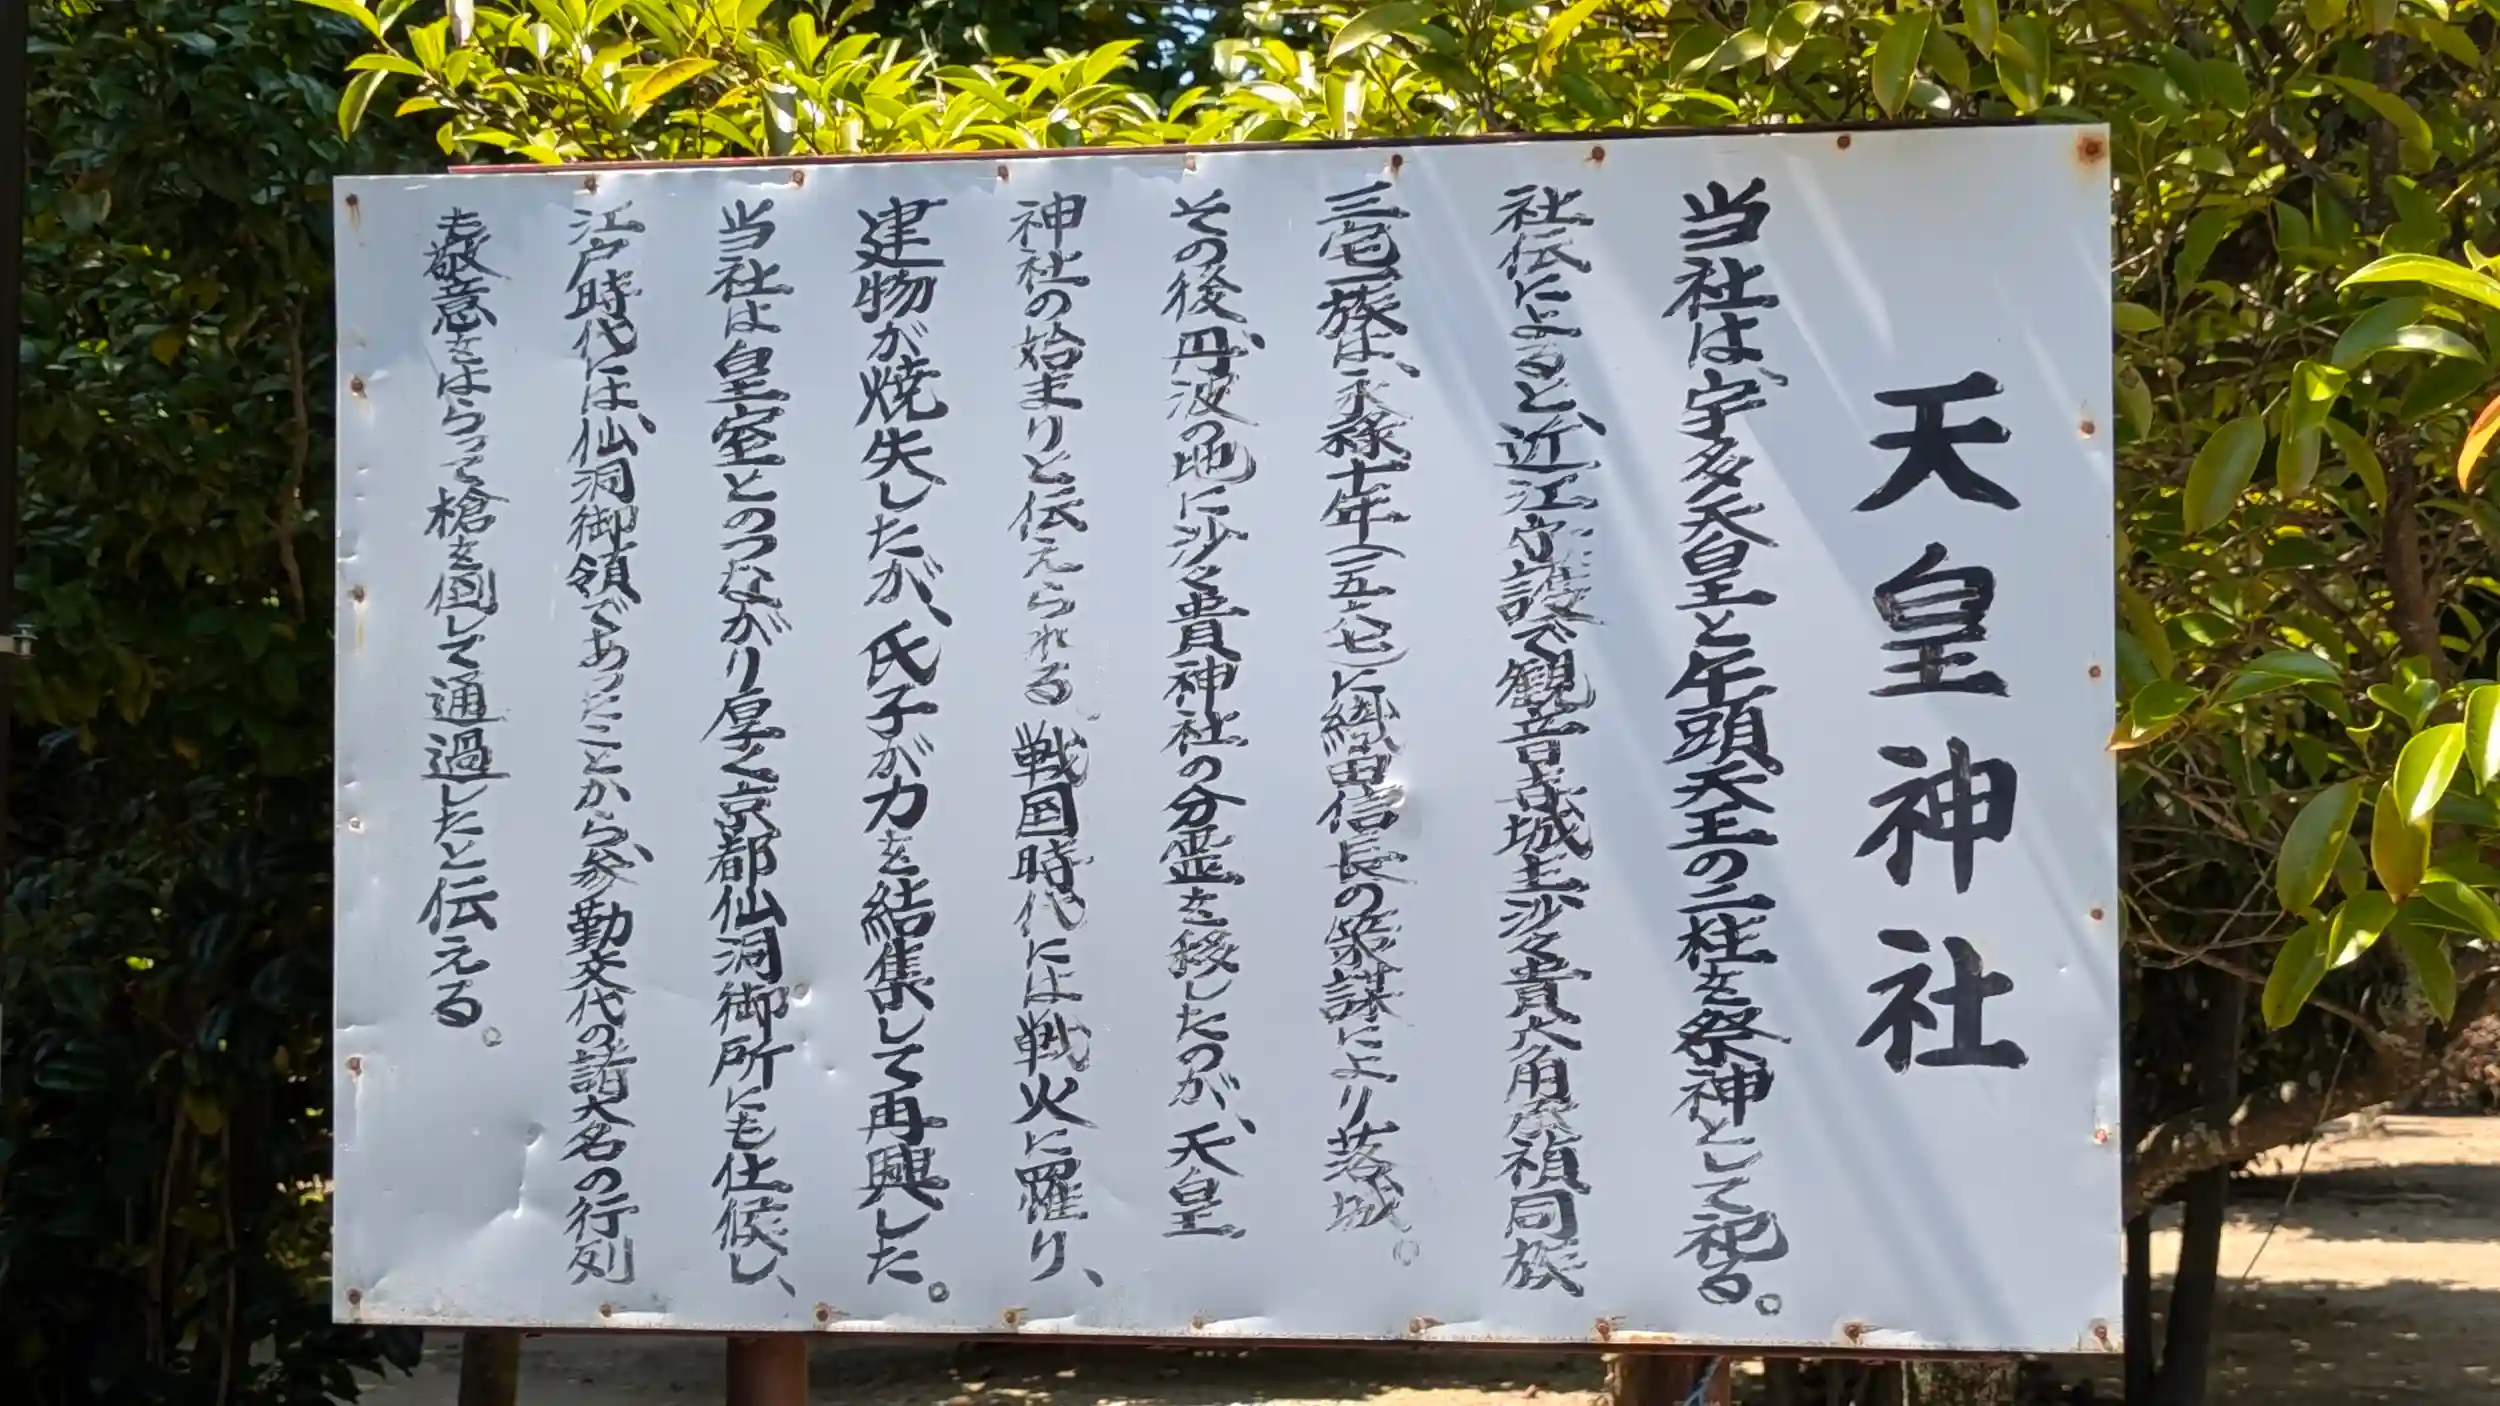 天皇神社
当社は、宇多天皇と牛頭天王の二柱を祭神として祀る。
社伝によると、近江守護で観音寺城主沙々貴六角承禎同族
三宅一族は、永禄十年(一五六七)に織田信長の策謀により落城。
その後、丹波の地に沙々貴神社の分霊を移したのが、天皇
神社の始まりと伝えられる。戦国時代には戦火に羅り、
建物が焼失したが、氏子が力を結集して再興した。
当社は皇室とのつながり厚く京都仙洞御所にも仕候し、
江戸時代には、仙洞御領であったことから、参勤交代の諸大名の行列
も敬意をはらって槍を倒して通過したと伝える。